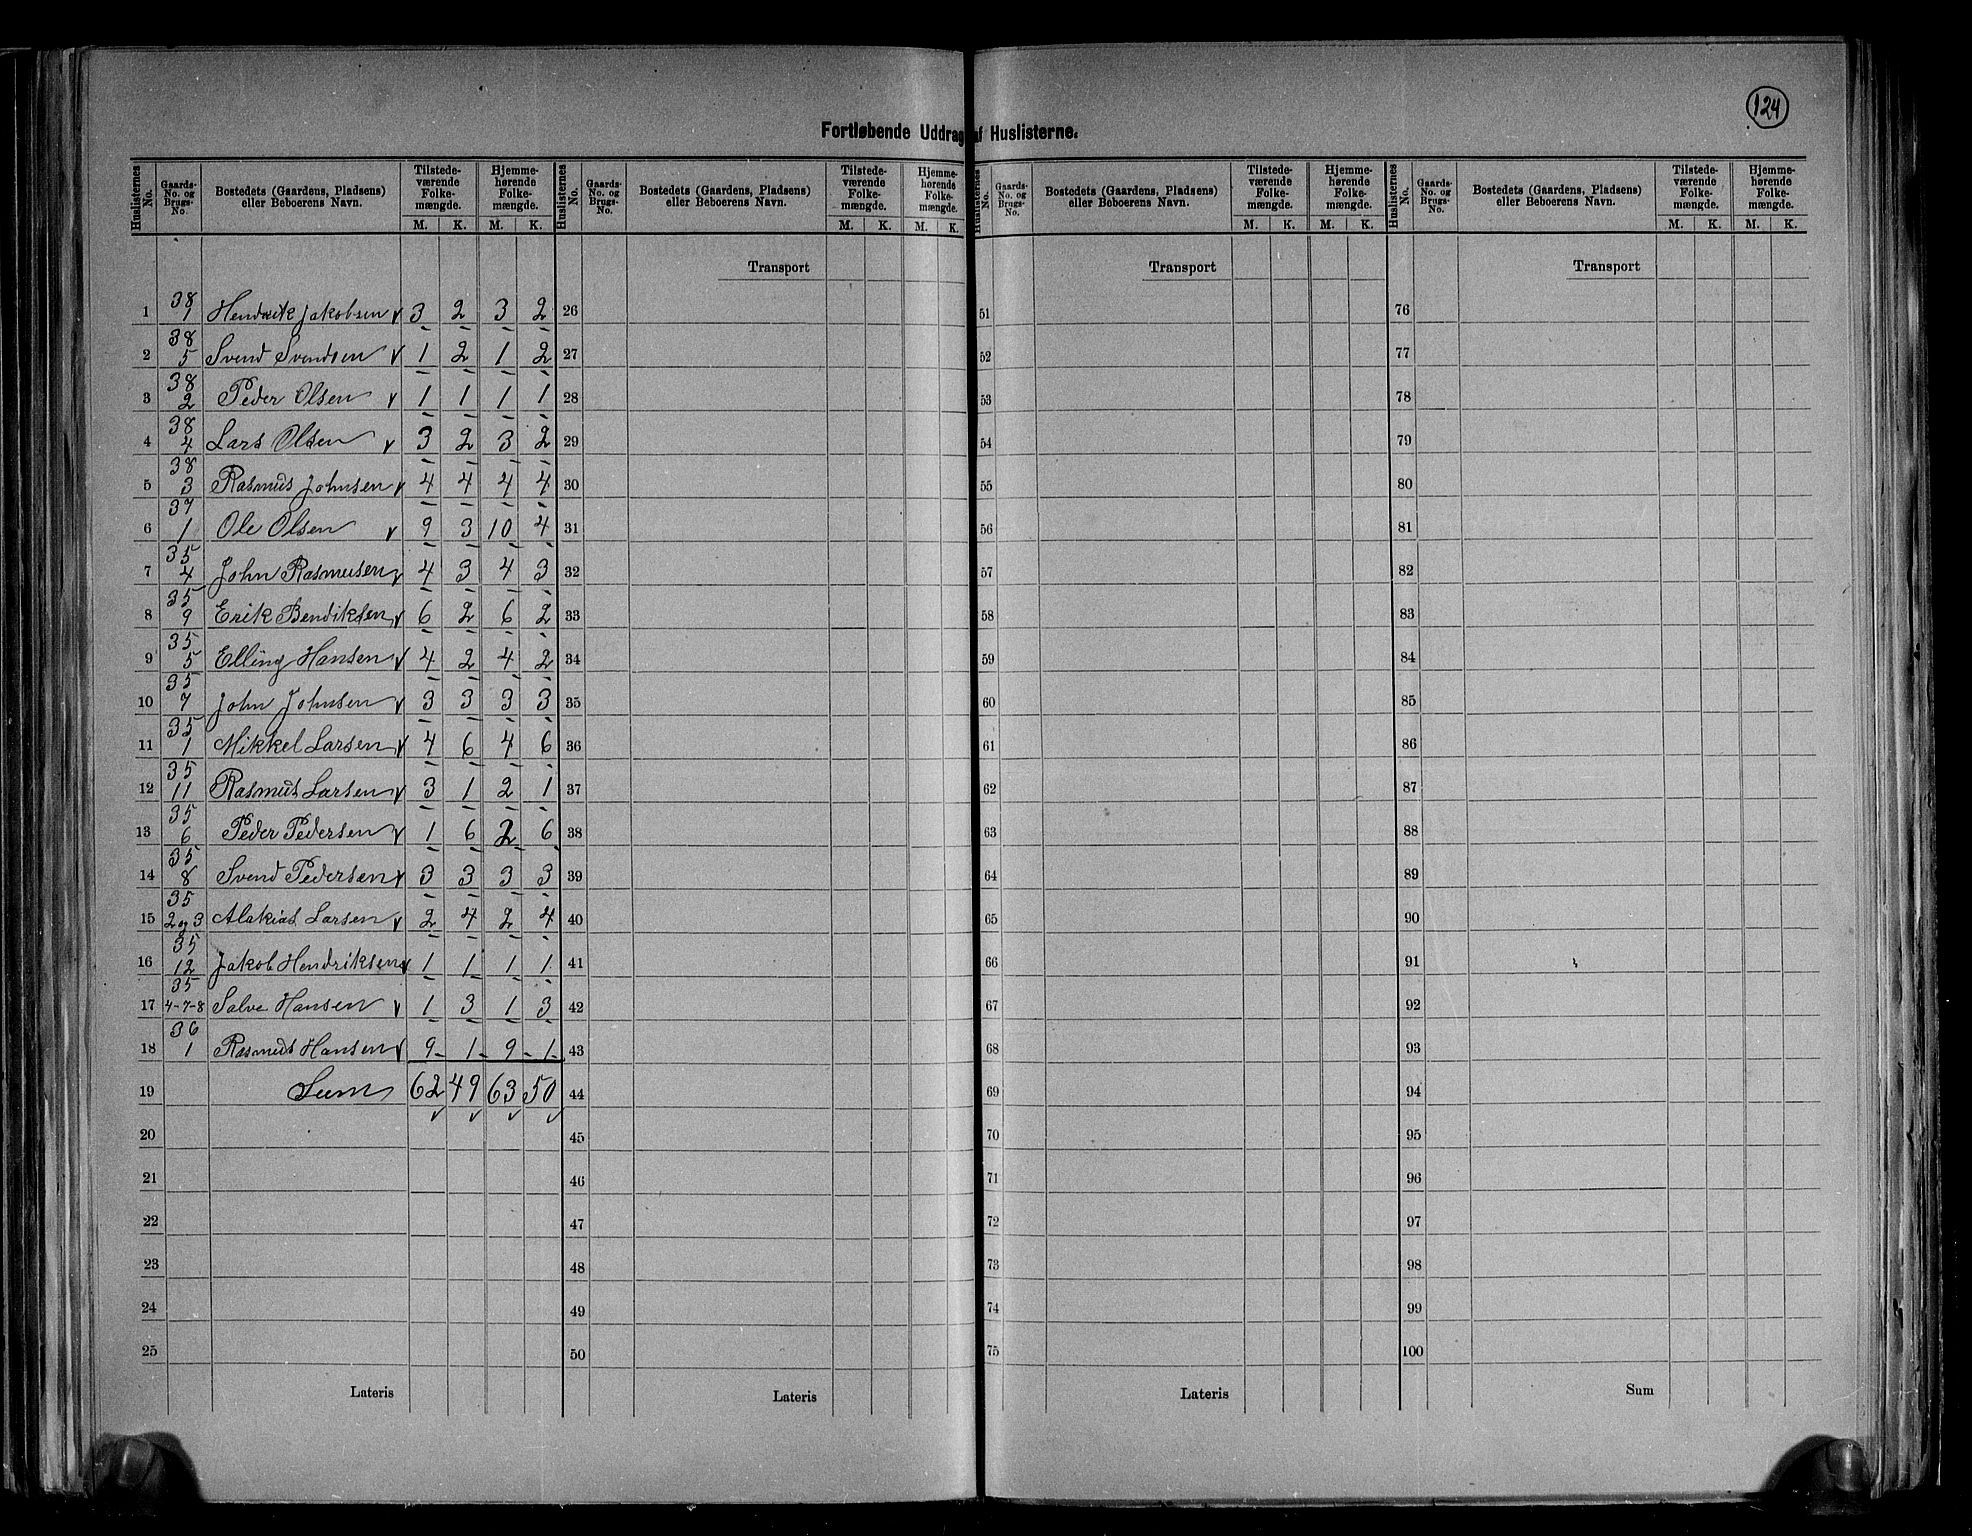 124
Fortløbende Uddrag af Huslisterne.
Huslisternes No. | Gaards-No. og Brugs-No. | Bostedets (Gaardens, Pladsens) eller Beboerens Navn. | Tilstedeværende Folkemængde. M. K. | Hjemmehørende Folkemængde. M. K.
1 | 38 1 | Hendrik Jakobsen v | 3 | 2 | 3 | 2
2 | 38 5 | Svend Svendsen v | 1 | 2 | 1 | 2
3 | 38 2 | Peder Olsen v | 1 | 1 | 1 | 1
4 | 38 4 | Lars Olsen v | 3 | 2 | 3 | 2
5 | 38 3 | Rasmus Johnsen v | 4 | 4 | 4 | 4
6 | 37 1 | Ole Olsen v | 9 | 3 | 10 | 4
7 | 35 4 | John Rasmusen v | 4 | 3 | 4 | 3
8 | 35 9 | Erik Bendiksen v | 6 | 2 | 6 | 2
9 | 35 5 | Elling Hansen v | 4 | 2 | 4 | 2
10 | 35 7 | John Johnsen v | 3 | 3 | 3 | 3
11 | 35 1 | Mikkel Larsen v | 4 | 6 | 4 | 6
12 | 35 11 | Rasmus Larsen v | 3 | 1 | 2 | 1
13 | 35 6 | Peder Pedersen v | 1 | 6 | 2 | 6
14 | 35 8 | Svend Pedersen v | 3 | 3 | 3 | 3
15 | 35 2 og 3 | Larsen v | 2 | 4 | 2 | 4
16 | 35 12 | Jakob Hendriksen v | 1 | 1 | 1 | 1
17 | 35 4-7-8 | Salve Hansen v | 1 | 3 | 1 | 3
18 | 36 1 | Rasmus Hansen v | 9 | 1 | 9 | 1
19 | Sum | 62 | 49 | 63 | 50
20
21
22
23
24
25
Lateris
Huslisternes No. | Gaards-No. og Brugs-No. | Bostedets (Gaardens, Pladsens) eller Beboerens Navn. | Tilstedeværende Folkemængde. M. K. | Hjemmehørende Folkemængde. M. K.
Transport
26
27
28
29
30
31
32
33
34
35
36
37
38
39
40
41
42
43
44
45
46
47
48
49
50
Lateris
Huslisternes No. | Gaards-No. og Brugs-No. | Bostedets (Gaardens, Pladsens) eller Beboerens Navn. | Tilstedeværende Folkemængde. M. K. | Hjemmehørende Folkemængde. M. K.
Transport
51
52
53
54
55
56
57
58
59
60
61
62
63
64
65
66
67
68
69
70
71
72
73
74
75
Lateris
Huslisternes No. | Gaards-No. og Brugs-No. | Bostedets (Gaardens, Pladsens) eller Beboerens Navn. | Tilstedeværende Folkemængde. M. K. | Hjemmehørende Folkemængde. M. K.
Transport
76
77
78
79
80
81
82
83
84
85
86
87
88
89
90
91
92
93
94
95
96
97
98
99
100
Sum